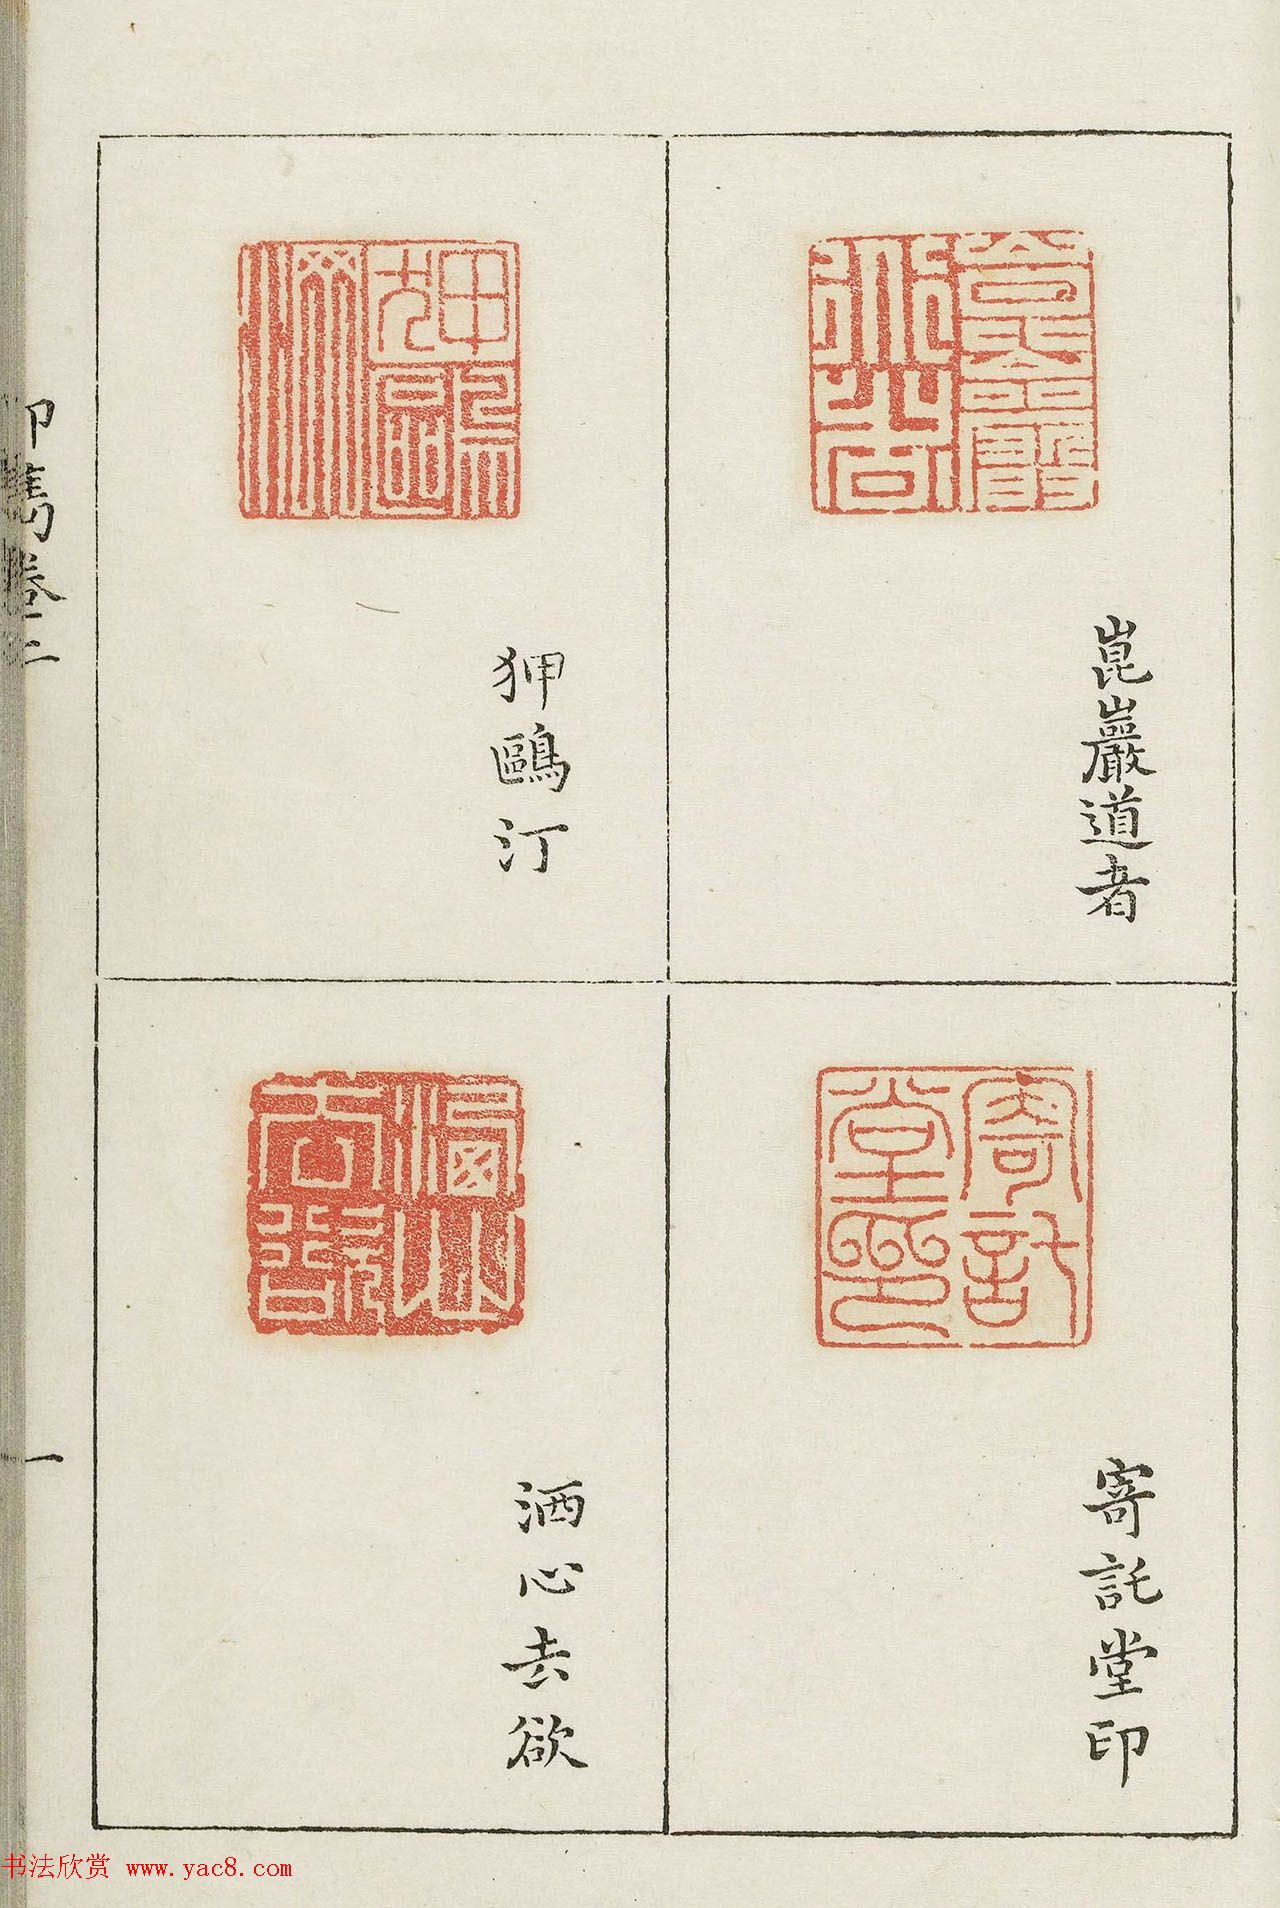 崑巖道者
寄託堂印
狎鷗汀
洒心去欲
印雋卷二
一
书法欣赏 www.yac8.com